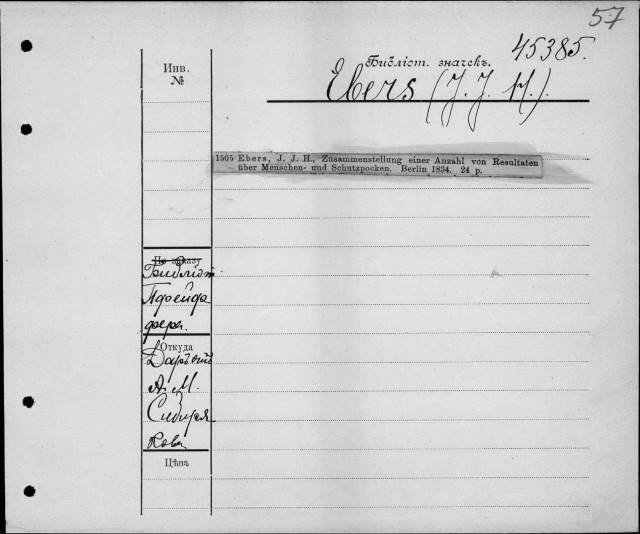 57
45385.
Библіот. значекъ.
Ebers (J. J. H.).
Инв.
№
1505 Ebers, J. J. H., Zusammenstellung einer Anzahl von Resultaten
über Menschen- und Schutzpocken. Berlin 1834. 24 p.
По заказу
Библіот
Пфейф
фера.
Откуда
Даръ
А. М.
Сибиря
кова
Цѣна